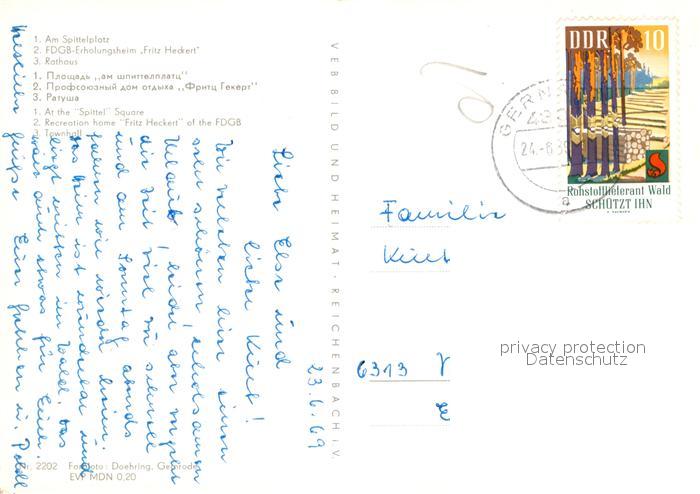 1. Am Spittelplatz
2. FDGB-Erholungsheim „Fritz Heckert"
3. Rathaus
1. Площадь „ам шпиттелплатц"
2. Профсоюзный дом отдыха „Фритц Гекерт"
3. Ратуша
1. At the "Spittel" Square
2. Recreation home "Fritz Heckert" of the FDGB
3. Townhall
VEB BILD UND HEIMAT · REICHENBACH i. V.
DDR 10
Rohstofflieferant Wald
SCHÜTZT IHN
GERN
24.-6.69
a
23.6.69
Liebe Else und
lieber Kurt!
Wir verleben hier einen
sehr schönen, erholsamen
Urlaub, leider, aber vergeht
die Zeit viel zu schnell
und am Sonntag abends
fahren wir wieder heim.
Das Heim ist wunderbar und
liegt mitten im Walde, das
wäre auch etwas für Euch.
grüßt Euer
Familie
Kurt
6313
privacy protection
Datenschutz
Nr. 2202 Farbfoto: Doehring, Gernrode
EVP MDN 0,20